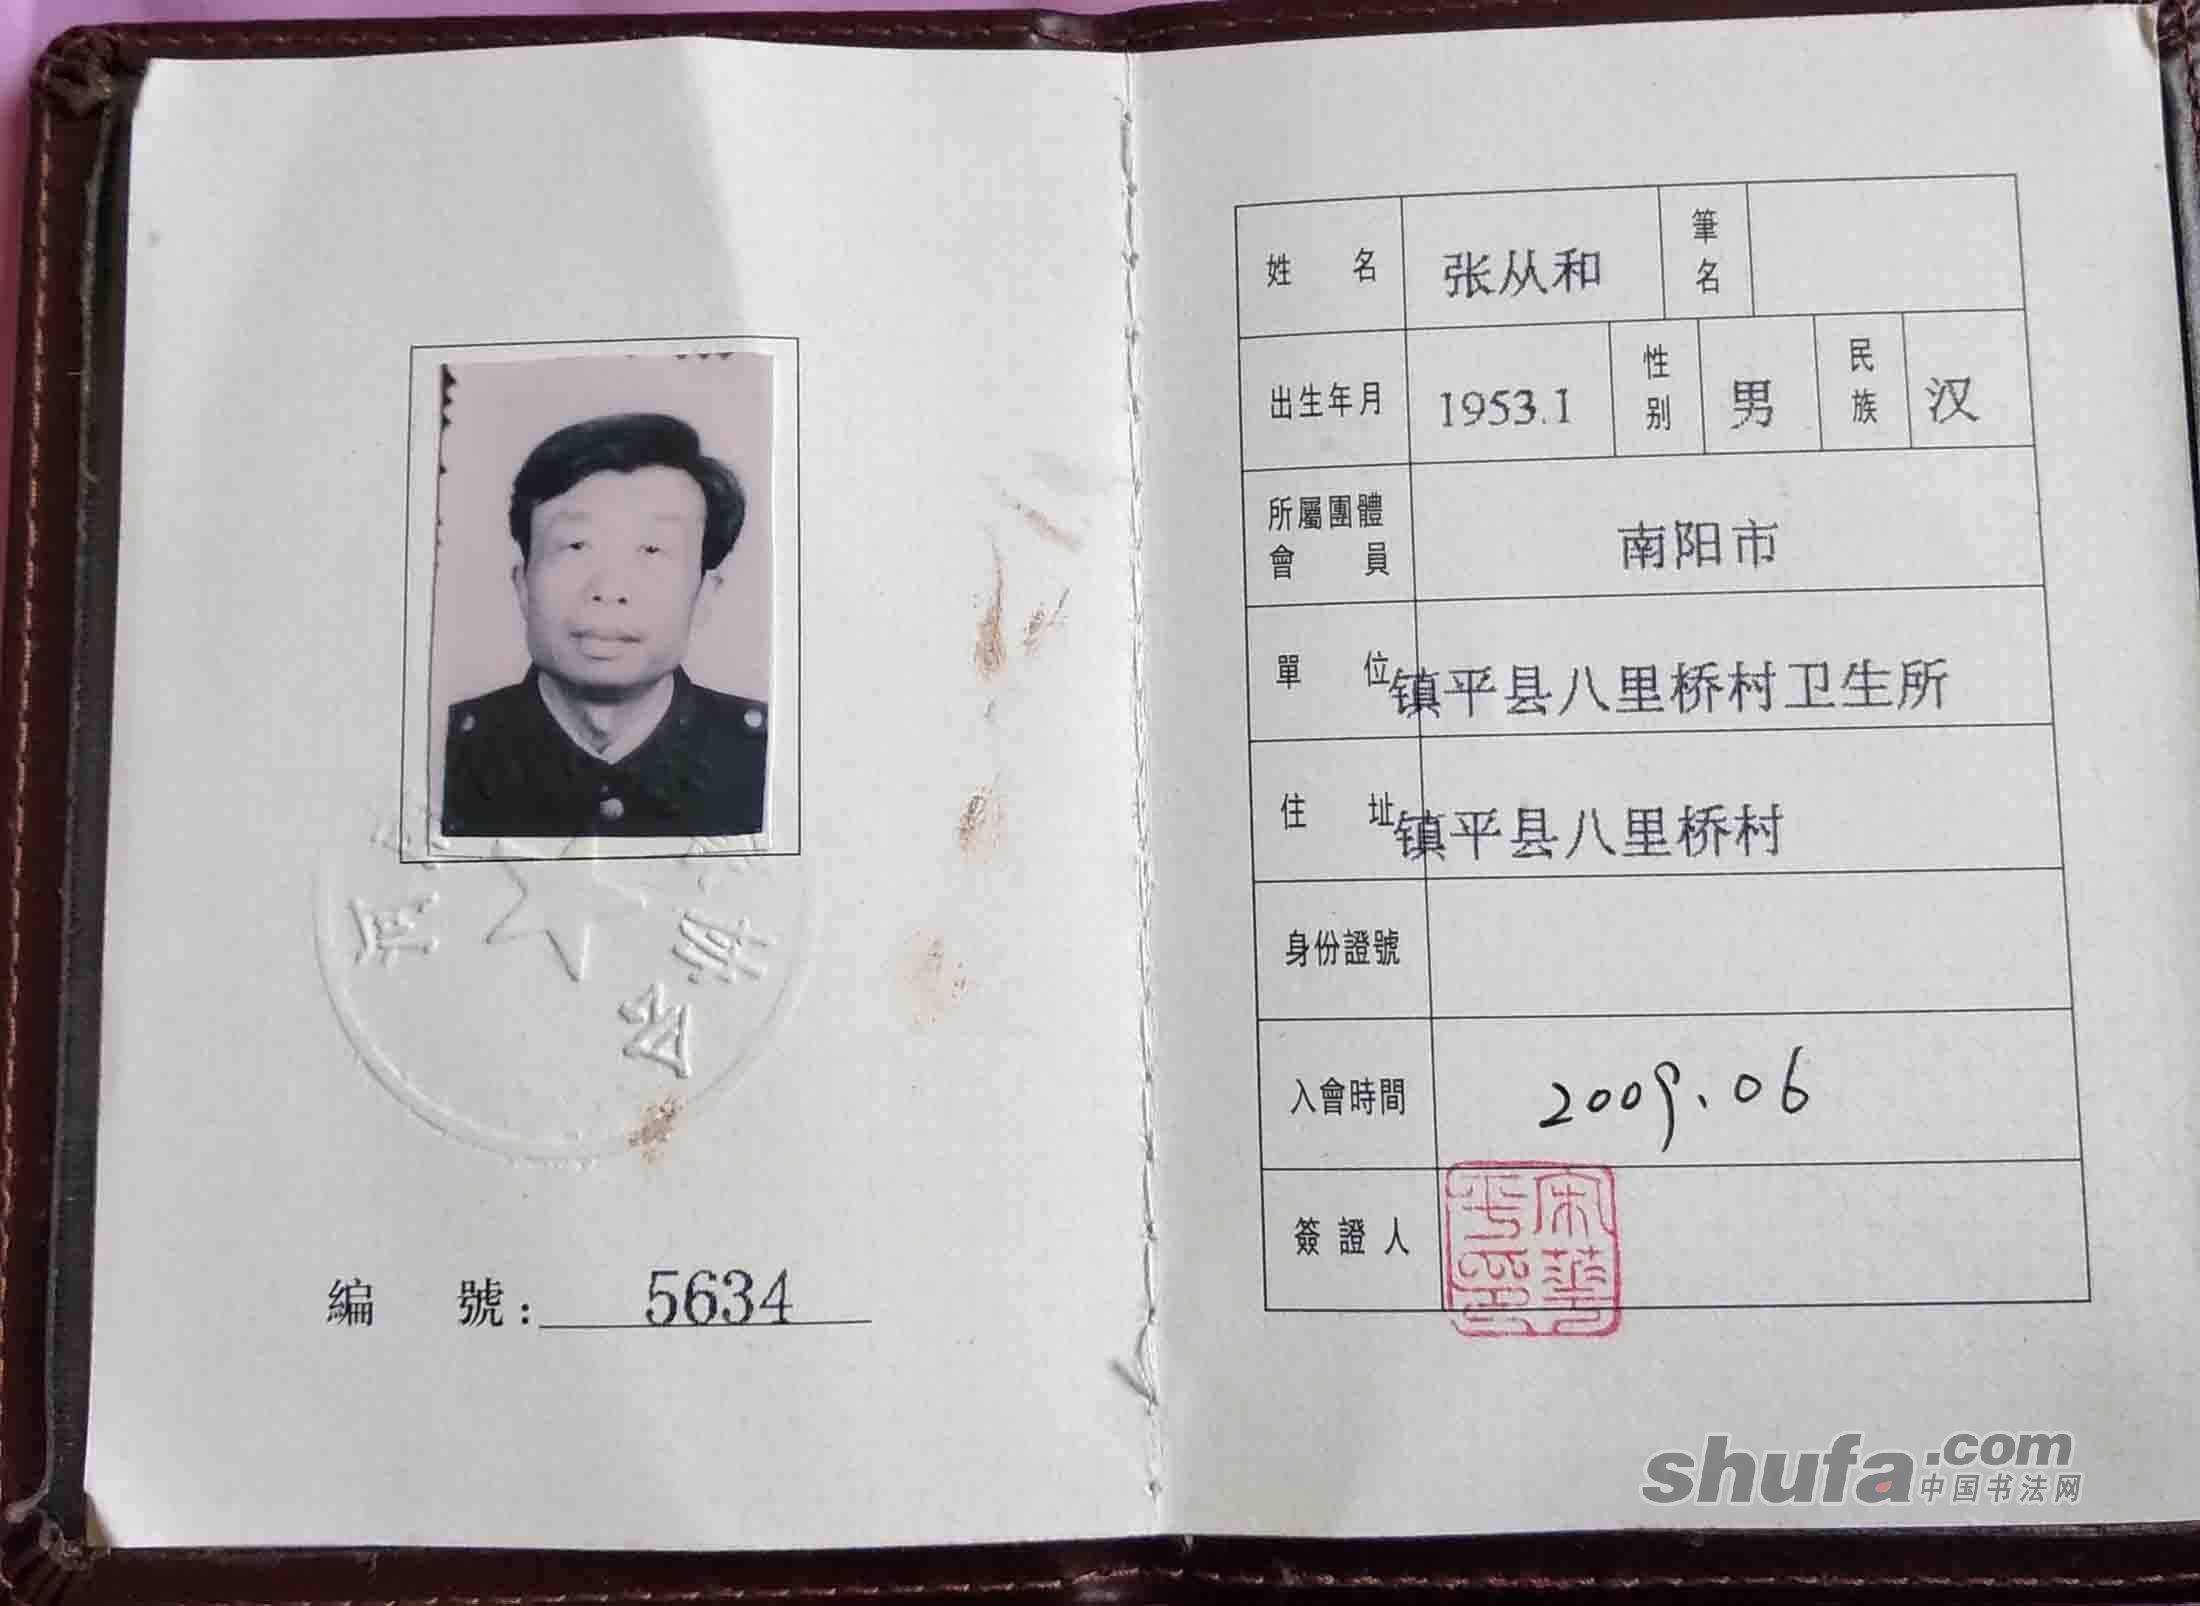 編 號: 5634
姓 名 张从和 筆名
出生年月 1953.1 性别 男 民族 汉
所屬團體會員 南阳市
單 位 镇平县八里桥村卫生所
住 址 镇平县八里桥村
身份證號
入會時間 2009.06
簽證人 宋華平印
shufa.com
中国书法网